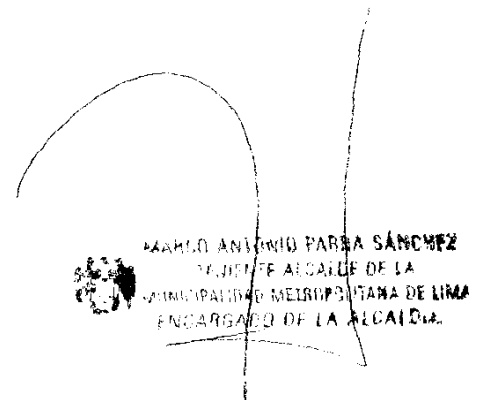 MARCO ANTONIO PARRA SÁNCHEZ
TENIENTE ALCALDE DE LA
MUNICIPALIDAD METROPOLITANA DE LIMA
ENCARGADO DE LA ALCALDIA